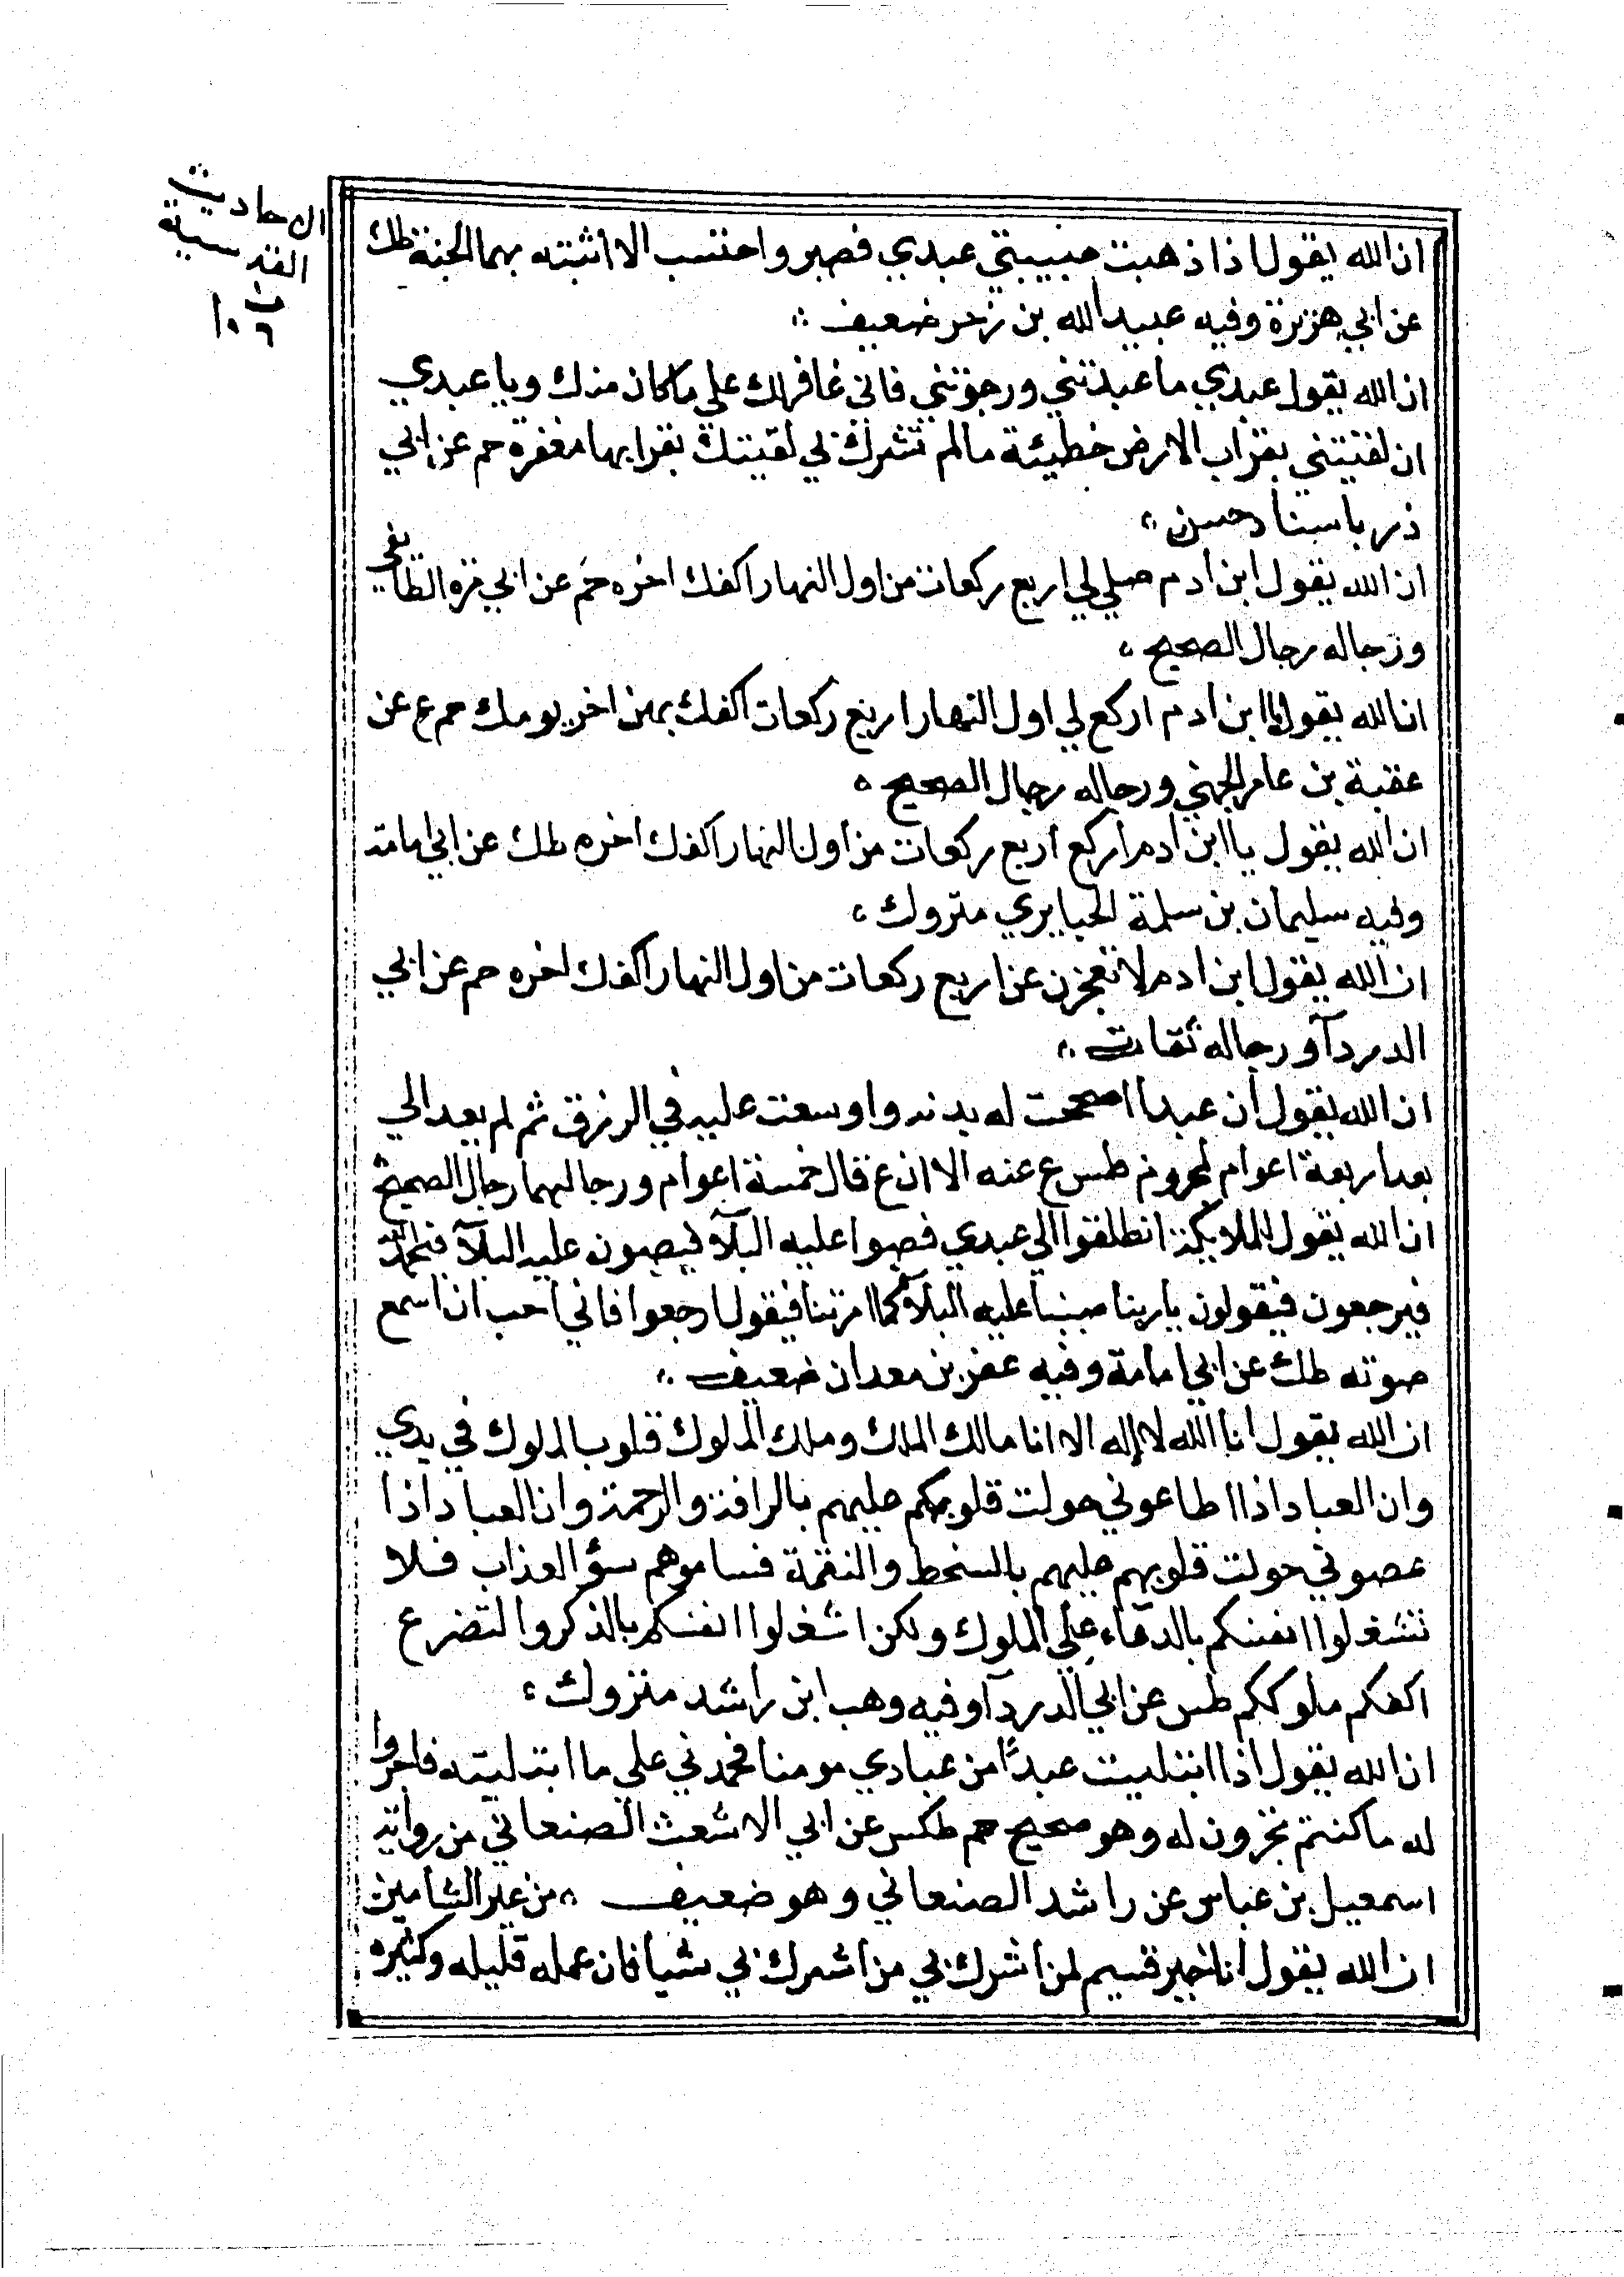 الاحاديث
القدسية
ف
١٠٦
ان الله يقول اذا ذهبت حبيبتي عبدي فصبر واحتسب الا اثبته بهما الجنة طك
عن ابي هريرة وفيه عبيد الله بن زحر ضعيف
ان الله يقول عبدي ما عبدتني ورجوتني فاني غافر لك على ما كان منك ويا عبدي
ان لقيتني بقراب الارض خطيئة ما لم تشرك بي لقيتك بقرابها مغفرة حم عن ابي
ذر باسناد حسن
ان الله يقول ابن ادم صلي لي اربع ركعات من اول النهار اكفك اخره حم عن ابي مره الطايفي
ورجاله رجال الصحيح
ان الله يقول يا ابن ادم اركع لي اول النهار اربع ركعات اكفك بهن اخر يومك حم ع عن
عقبة بن عامر الجهني ورجاله رجال الصحيح
ان الله يقول يا ابن ادم اركع اربع ركعات من اول النهار اكفك اخره طك عن ابي امامة
وفيه سليمان بن سلمة الخبايري متروك
ان الله يقول ابن ادم لا تعجزن عن اربع ركعات من اول النهار اكفك اخره حم عن ابي
الدردآ ورجاله ثقات
ان الله يقول ان عبدا اصححت له بدنه واوسعت عليه في الرزق ثم لم يعد الي
بعد اربعة اعوام لمحروم طس ع عنه الا ان ع قال خمسة اعوام ورجالهما رجال الصحيح
ان الله يقول للملايكة انطلقوا الي عبدي فصبوا عليه البلآ فيصبون عليه البلآ فيحمد الله
فيرجعون فيقولون يا ربنا صببنا عليه البلآ كما امرتنا فيقول ارجعوا فاني احب ان اسمع
صوته طك عن ابي امامة وفيه عفر بن معدان ضعيف
ان الله يقول انا الله لا إله الا انا مالك الملك وملك الملوك قلوب الملوك في يدي
وان العباد اذا اطاعوني حولت قلوبهم عليهم بالرافة والرحمة وان العباد اذا
عصوني حولت قلوبهم عليهم بالسخط والنقمة فساموهم سؤ العذاب فلا
تشغلوا انفسكم بالدعاء على الملوك ولكن اشغلوا انفسكم بالذكر والتضرع
اكفكم ملوككم طس عن ابي الدردآ وفيه وهب ابن راشد متروك
ان الله يقول اذا ابتليت عبدًا من عبادي مومنا فحمدني على ما ابتليته فاجروا
له ما كنتم تجرون له وهو صحيح حم طكس عن ابي الاشعث الصنعاني من رواية
اسمعيل بن عباس عن راشد الصنعاني وهو ضعيف من غير الشاميين
ان الله يقول انا خير قسيم لمن اشرك بي من اشرك بي شيا فان عمله قليله وكثيره